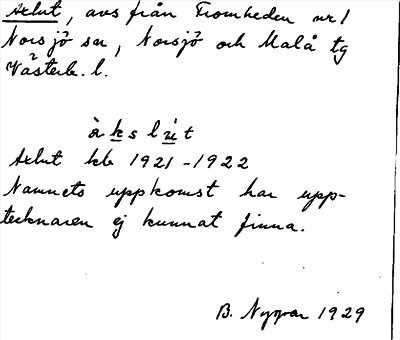 Axlut, avs från Fromheden nr 1
Norsjö sn, Norsjö och Malå tg
Västerb. l.
àkslút
Axlut kb 1921-1922
Namnets uppkomst har upp-
tecknaren ej kunnat finna.
B. Nygren 1929